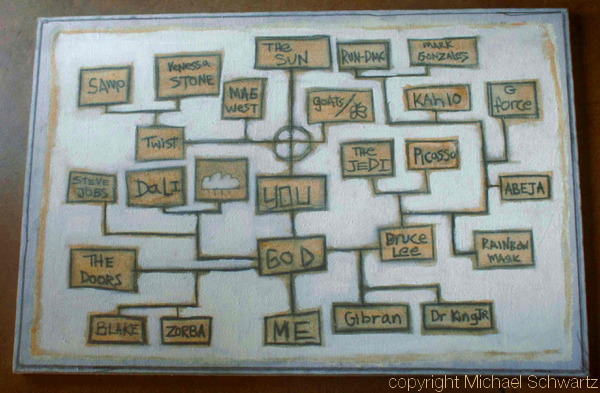 THE
SUN
RUN-DMC
MARK
GONZALES
SAMO
Vanessa
STONE
MAE
West
goats/
KAHlO
G
force
Twist
THE
JEDI
Picasso
STEVE
JOBS
DaLI
YOU
ABEJA
THE
DOORS
GOD
Bruce
Lee
RAINBOW
MASK
BLAKE
ZORBA
ME
Gibran
Dr King Jr
copyright Michael Schwartz